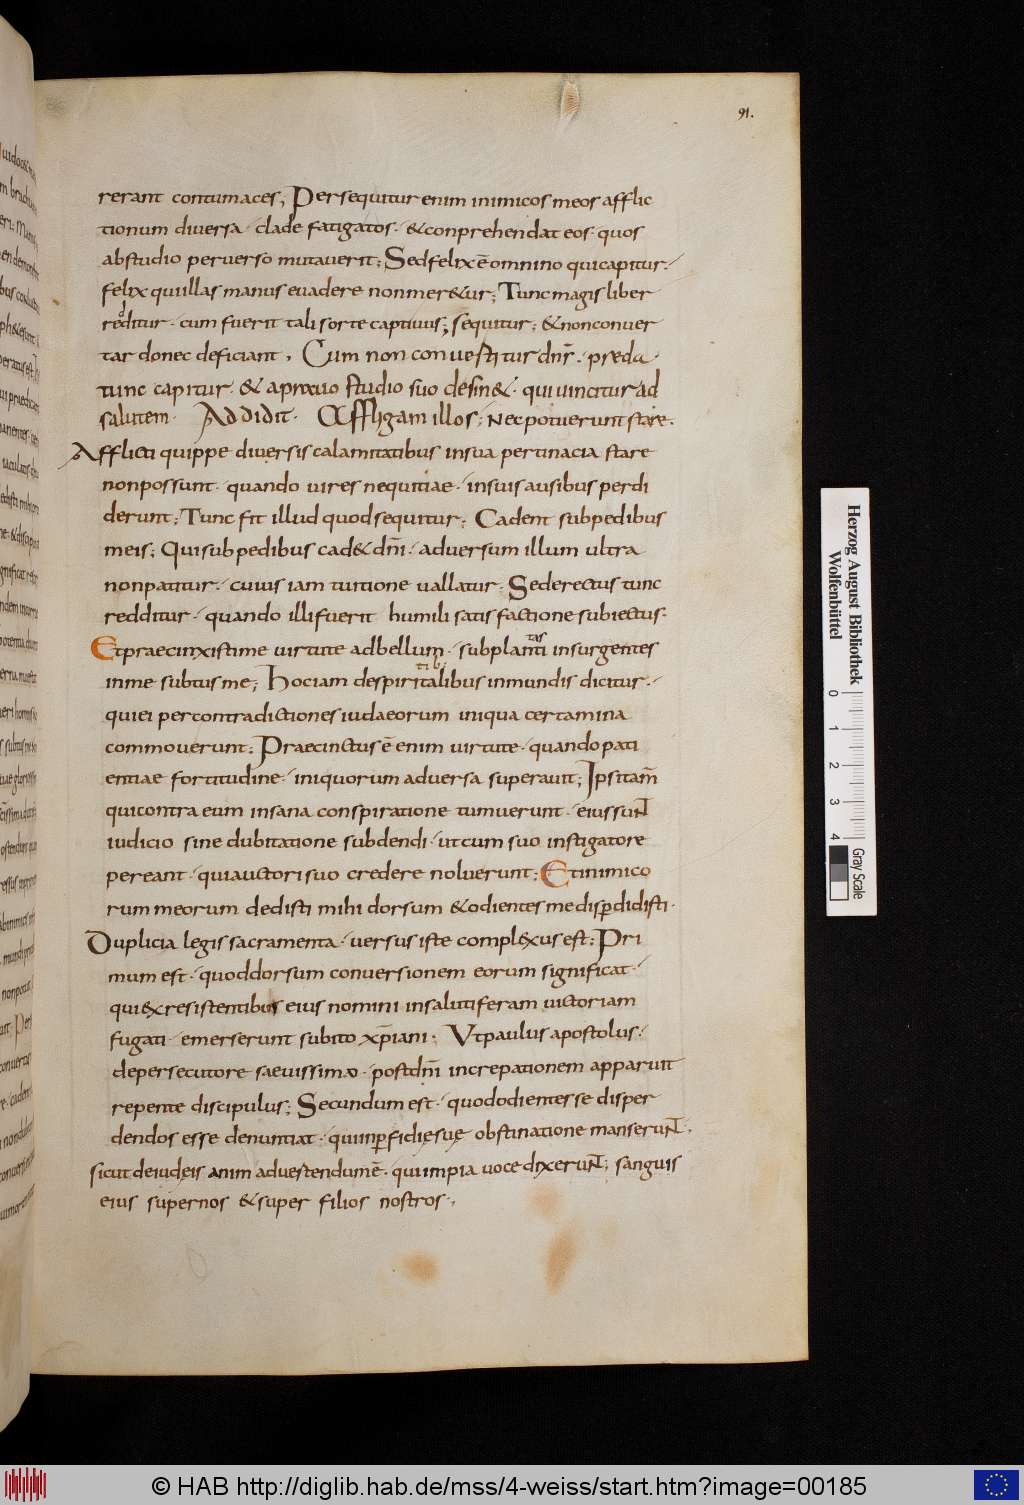 91.
rerant contumaces; Persequitur enim inimicos meos afflic
tionum diversa · clade fatigatos · & conprehendat eos · quos
abstudio perverso mutaverit; Sed felix ē omnino qui capitur ·
felix qui illas manus evadere non mer&ur; Tunc magis liber
redditur · cum fuerit tali sorte captivus; sequitur; & non conver
tar donec deficiant · Cum non convertitur dnr̄ · preda
tunc capitur · & a studio suo desin& · qui vincitur ad
salutem · Addidit · Affligam illos; Nec potuerunt stare.
Afflicti quippe diversis calamitatibus in sua pertinacia stare
non possunt · quando vires nequitiae · in suis ausibus perdi
derunt; Tunc fit illud quod sequitur; Cadent sub pedibus
meis; Qui sub pedibus cad& dn̄i · adversum illum ultra
non patitur · cuius iam tuitione vallatur · Sed erectus tunc
redditur · quando illi fuerit humili satisfactione subiectus ·
Et praecinxisti me virtute ad bellum · subplantasti insurgentes
in me subtus me; Hoc iam de spiritalibus inmundis dicitur ·
qui ei per contradictiones iudaeorum iniqua certamina
commoverunt; Praecinctus ē enim virtute · quando pati
entiae fortitudine · iniquorum adversa superavit; Ipsi tam̄
qui contra eum insana conspiratione tumuerunt · eius sunt
iudicio sine dubitatione subdendi · ut cum suo instigatore
pereant · qui auctori suo credere noluerunt; Et inimico
rum meorum dedisti mihi dorsum & odientes me disperdidisti ·
Duplicia legis sacramenta · versus iste complexus est; Pri
mum est · quod dorsum conversionem eorum significat ·
qui ex resistentibus eius nomini in salutiferam victoriam
fugati · emerserunt subito xp̄iani; Ut paulus apostolus ·
de persecutore saevissimo · post dn̄i increpationem apparuit
repente discipulus; Secundum est · quod odientes se disper
dendos esse denuntiat · qui in pfidię suę obstinatione manserunt ·
sicut de iudeis animadvertendum ē · qui impia voce dixerunt; sanguis
eius super nos & super filios nostros ·
Herzog August Bibliothek
Wolfenbüttel
0 1 2 3 4
Gray Scale
© HAB http://diglib.hab.de/mss/4-weiss/start.htm?image=00185